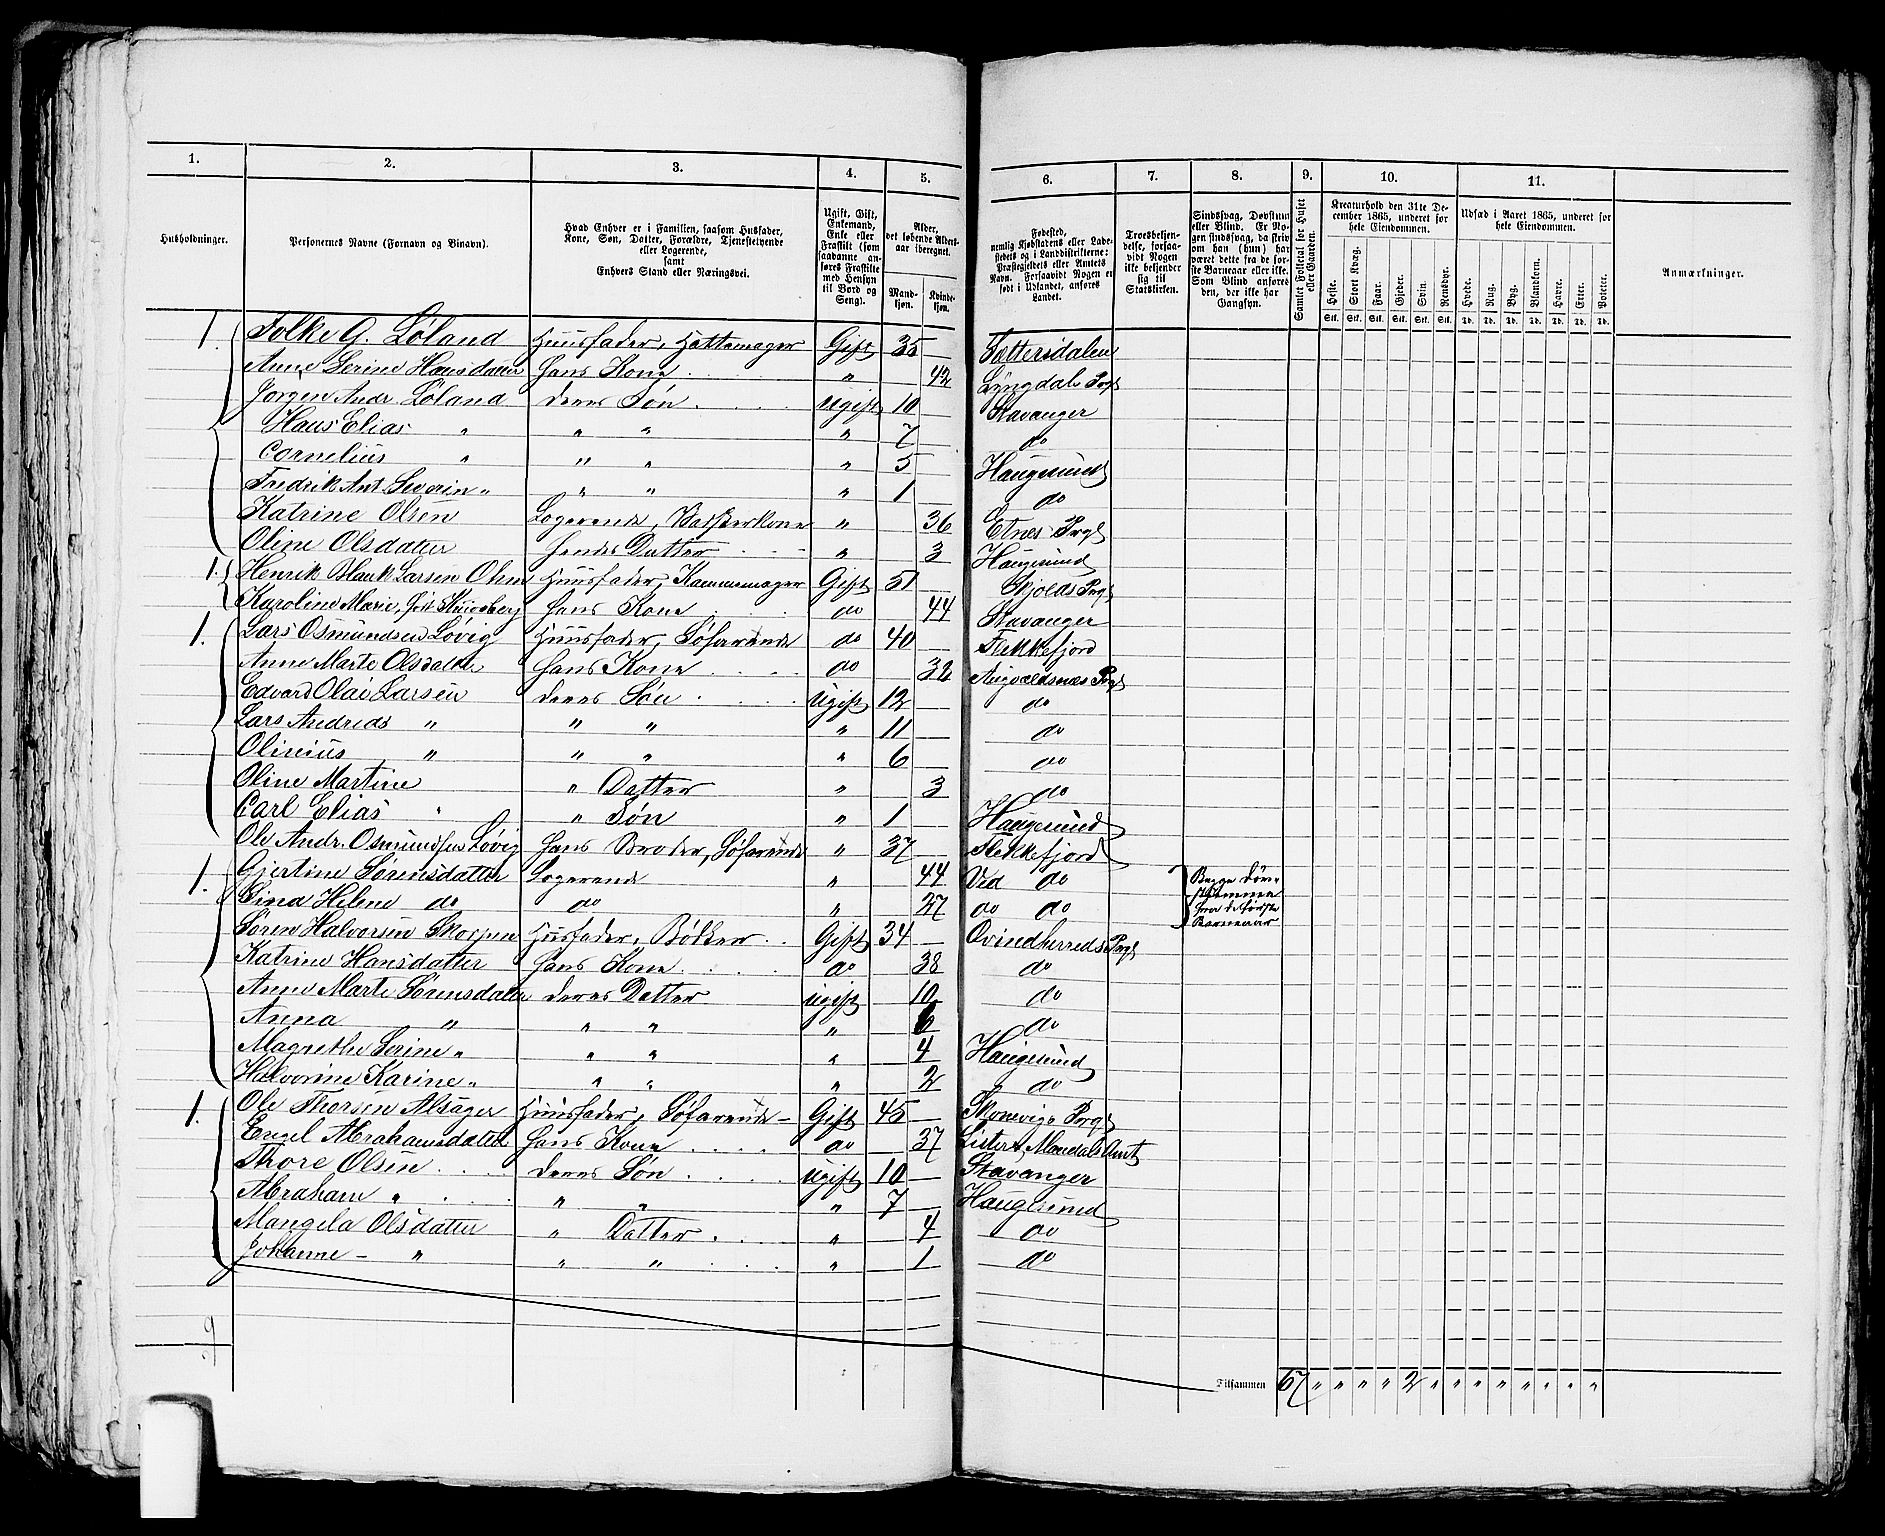 1. 2. 3. 4. 5. 6. 7. 8. 9. 10. 11.
Husholdninger.
Personernes Navne (Fornavn og Binavn).
Hvad Enhver er i Familien, saasom Husfader, Kone, Søn, Datter, Forældre, Tjenestetyende eller Logerende, samt Enhvers Stand eller Næringsvei.
Ugift, Gift, Enkemand, Enke eller Fraskilt (som saadanne anføres Fraskilte med Hensyn til Bord og Seng).
Alder, det løbende Aldersaar iberegnet.
Mandkjøn. Kvindekjøn.
Fødested, nemlig Kjøbstadens eller Ladestedets og i Landdistrikterne: Præstegjeldets eller Amtets Navn. Forsaavidt Nogen er født i Udlandet, anføres Landet.
Troesbekjendelse, forsaavidt Nogen ikke bekjender sig til Statskirken.
Sindssvag, Døvstum eller Blind. Er Nogen sindssvag, da skrives om han (hun) har været dette fra de første Barneaar eller ikke. Som Blind anføres den, der ikke har Gangsyn.
Samlet Folketal for Huset eller Gaarden.
Kreaturhold den 31te December 1865, underet for hele Eiendommen.
Heste. Stort Kvæg. Faar. Gjeder. Svin. Rensdyr.
Stk. Stk. Stk. Stk. Stk. Stk.
Udsæd i Aaret 1865, underet for hele Eiendommen.
Hvede. Rug. Byg. Blandkorn. Havre. Erter. Poteter.
Td. Td. Td. Td. Td. Td. Td.
Anmærkninger.
1. Folke G. Løland Huusfader, Hattemager Gift 35 Fættersdalen
Anne Serine Hansdatter Hans Kone " 42 Lyngdals Prgl
Jørgen Andr. Løland deres Søn Ugift 10 Stavanger
Hans Elias " " " " 7 do
Cornelius " " " " 5 Haugesund
Fredrik Ant. Severin " " " " 1 do
Katrine Olsen Logerende, Vaskerkone " 36 Etnes Prgl
Oline Olsdatter Hendes Datter " 3 Haugesund
1. Henrik Blank Larsen Ohm Huusfader, Kammemager Gift 51 Skjolds Prgl
Karoline Marie, født Hans Kone do 44 Stavanger
1. Lars Osmundsen Løvig Huusfader, Søfarende do 40 Flekkefjord
Anne Marte Olsdatter Hans Kone do 32 Augvaldsnæs Prgl
Edvard Olai Larsen deres Søn Ugift 12 do
Lars Andreas " " " " 11 do
Olinius " " " " 6 do
Oline Martine " Datter " 3 do
Carl Elias " " Søn " 1 Haugesund
Ole Andr. Osmundsen Løvig Hans Broder, Søfarende " 37 Flekkefjord
1. Gjertine Sørensdatter Logerende " 44 Ved do Begge døve
Sina Helene do do " 27 do do stumme fra de første Barneaar
Søren Halvorsen Skorpen Husfader, Bøkker Gift 34 Qvindherreds Prgl
Katrine Hansdatter Hans Kone do 38 do
Anne Marte Sørensdatter deres Datter Ugift 10 do
Anna " " " " 6 do
Magrethe Serine " " " " 4 Haugesund
Halvorine Karine " " " " 2 do
1. Ole Thorsen Alsager Huusfader, Søfarende Gift 45 Skonevigs Prgl
Engel Abrahamsdatter Hans Kone do 37 Lister & Mandals Amt
Thore Olsen deres Søn Ugift 10 Stavanger
Abraham " " " " 7 Haugesund
Mangela Olsdatter " Datter " 4 do
Johanne " " " " 1 do
9
Tilsammen 67 " " " " 2 " " " " " " " "